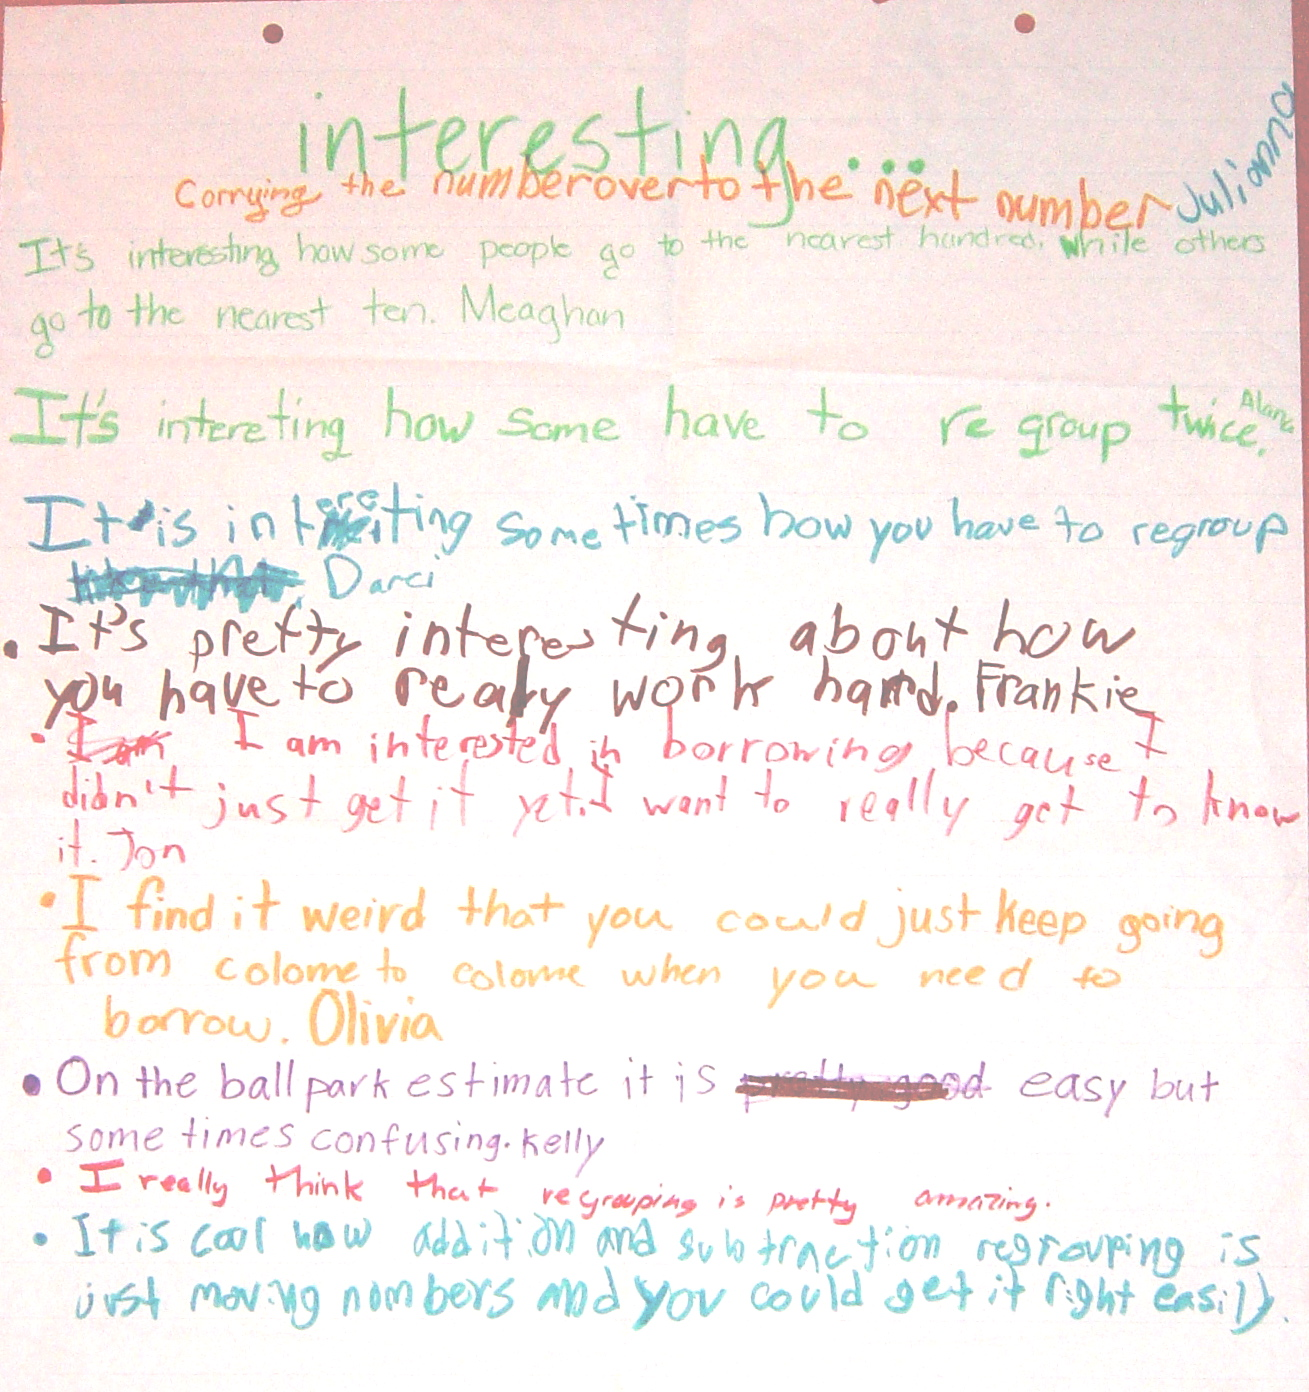 interesting...
Carrying the number over to the next number Julianna
It's interesting how some people go to the nearest hundred, while others
go to the nearest ten. Meaghan
It's intereting how some have to re group twice. Alana
It is intereting some times how you have to regroup
Darci
• It's pretty interesting about how
you have to realy work hard. Frankie
• I am I am interested in borrowing because I
didn't just get it yet. I want to really get to know
it. Jon
• I find it weird that you could just keep going
from colome to colome when you need to
borrow. Olivia
• On the ball park estimate it is pretty good easy but
some times confusing. Kelly
• I really think that regrouping is pretty amazing.
• It is cool how addition and subtraction regrouping is
just moving numbers and you could get it right easily.